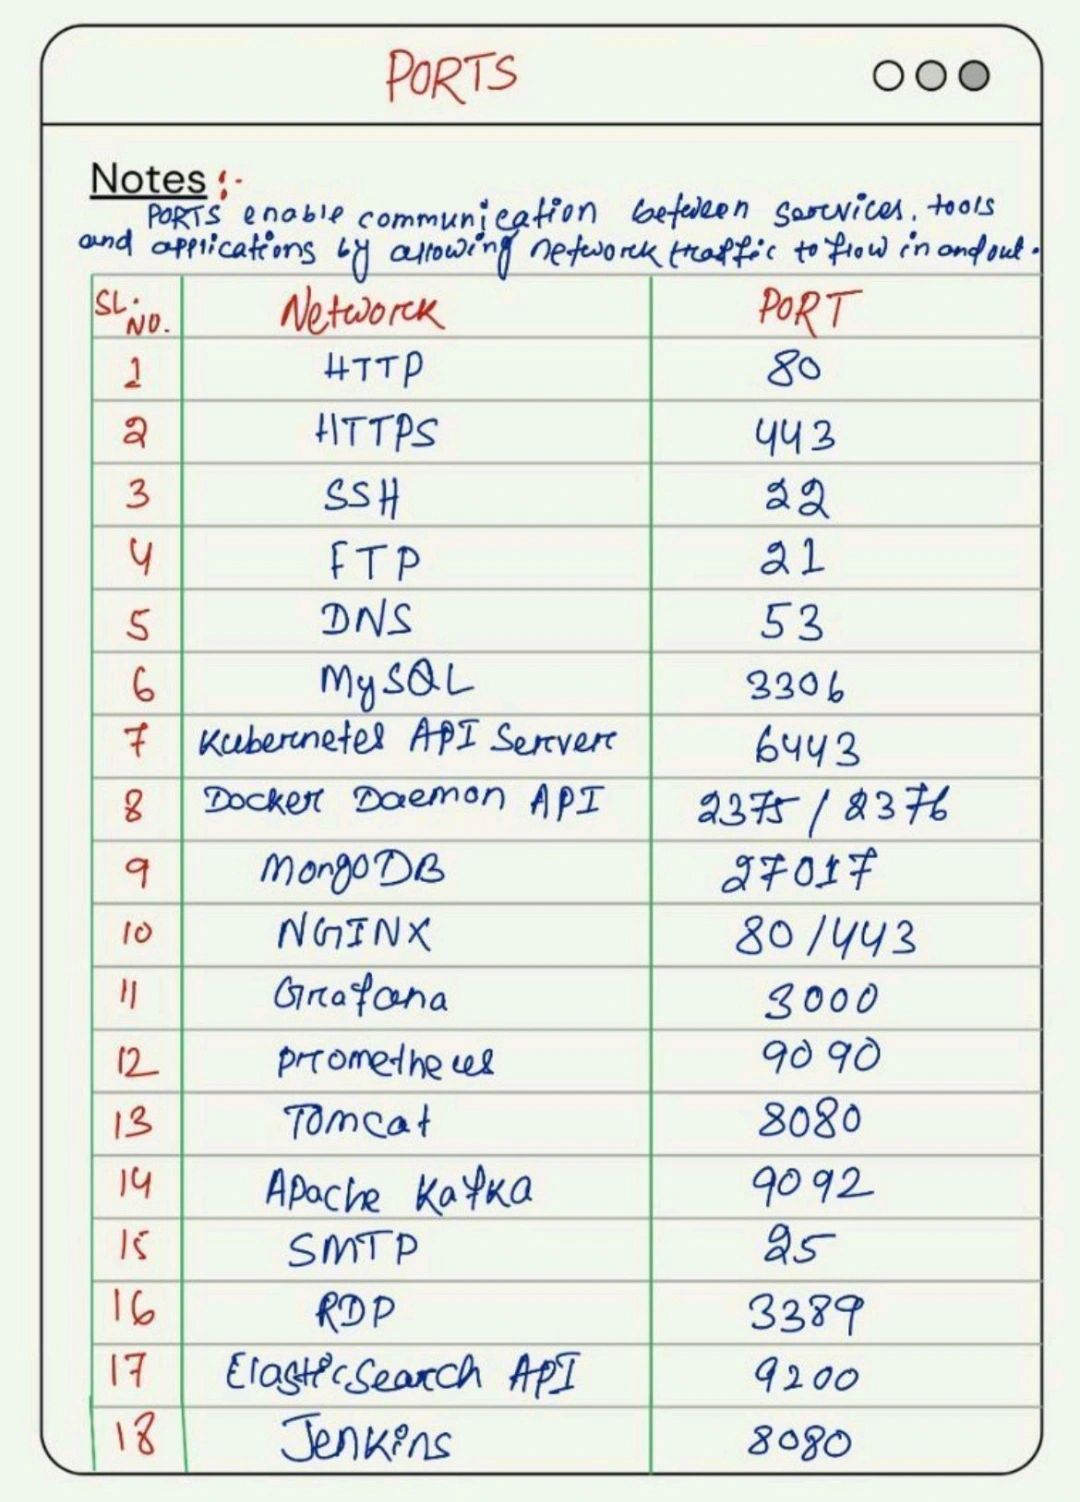 PORTS
Notes :-
PORTS enable communication between services, tools
and applications by allowing network traffic to flow in and out.
SL. NO. Network PORT
1 HTTP 80
2 HTTPS 443
3 SSH 22
4 FTP 21
5 DNS 53
6 MySQL 3306
7 Kubernetes API Server 6443
8 Docker Daemon API 2375 / 2376
9 MongoDB 27017
10 NGINX 80 / 443
11 Grafana 3000
12 Prometheus 9090
13 Tomcat 8080
14 Apache Kafka 9092
15 SMTP 25
16 RDP 3389
17 ElasticSearch API 9200
18 Jenkins 8080